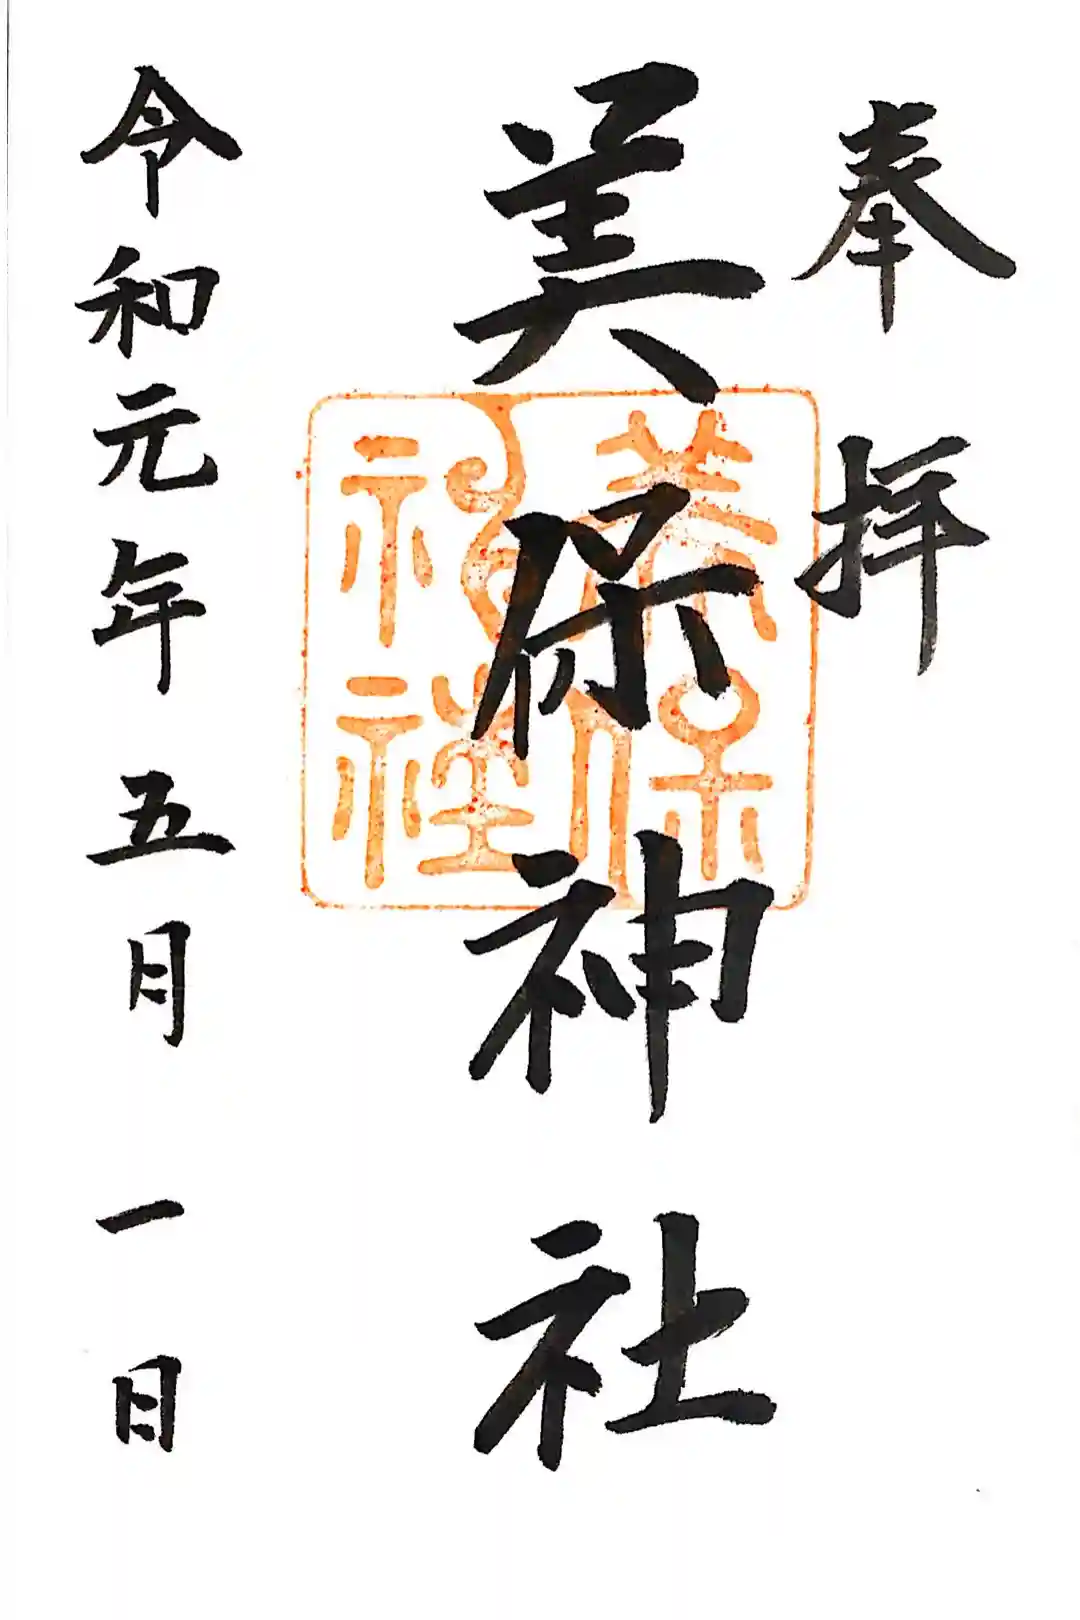 奉拝
美保神社
美保神社
令和元年五月一日